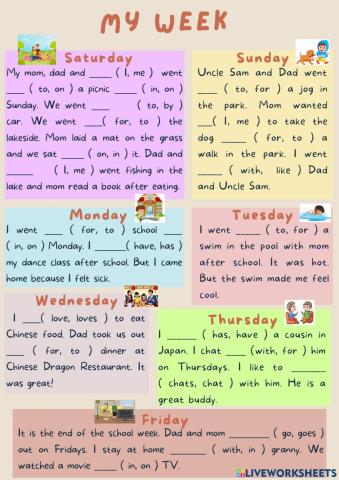 MY WEEK
Saturday
My mom, dad and ____ ( I, me ) went
___ ( to, on ) a picnic ____ ( in, on )
Sunday. We went ____ ( to, by )
car. We went ____( for, to ) the
lakeside. Mom laid a mat on the grass
and we sat ____ ( on, in ) it. Dad and
_____ ( I, me ) went fishing in the
lake and mom read a book after eating.
Sunday
Uncle Sam and Dad went
___ ( to, for ) a jog in
the park. Mom wanted
___( I, me ) to take the
dog ____ ( for, to ) a
walk in the park. I went
_____ ( with, like ) Dad
and Uncle Sam.
Monday
I went ___ ( for, to ) school ___
( in, on ) Monday. I ______( have, has )
my dance class after school. But I came
home because I felt sick.
Tuesday
I went _____ ( to, for ) a
swim in the pool with mom
after school. It was hot.
But the swim made me feel
cool.
Wednesday
I ___( love, loves ) to eat
Chinese food. Dad took us out
___ ( for, to ) dinner at
Chinese Dragon Restaurant. It
was great!
Thursday
I ______ ( has, have ) a cousin in
Japan. I chat ____ (with, for ) him
on Thursdays. I like to _______
( chats, chat ) with him. He is a
great buddy.
Friday
It is the end of the school week. Dad and mom _______ ( go, goes )
out on Fridays. I stay at home ______ ( with, in ) granny. We
watched a movie ____ ( in, on ) TV.
LIVEWORKSHEETS